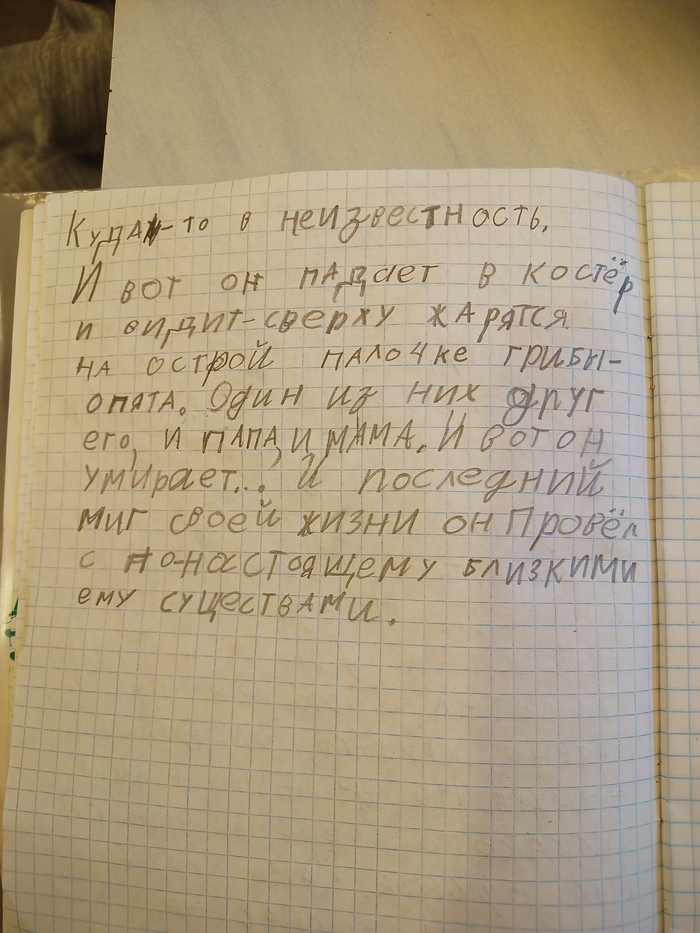 Куда-то в неизвестность.
И вот он падает в костёр
и видит-сверху жарятся
на острой палочке грибы-
опята. Один из них друг
его, и папа, и мама. И вот он
умирает... И последний
миг своей жизни он Провёл
с по-настоящему близкими
ему существами.